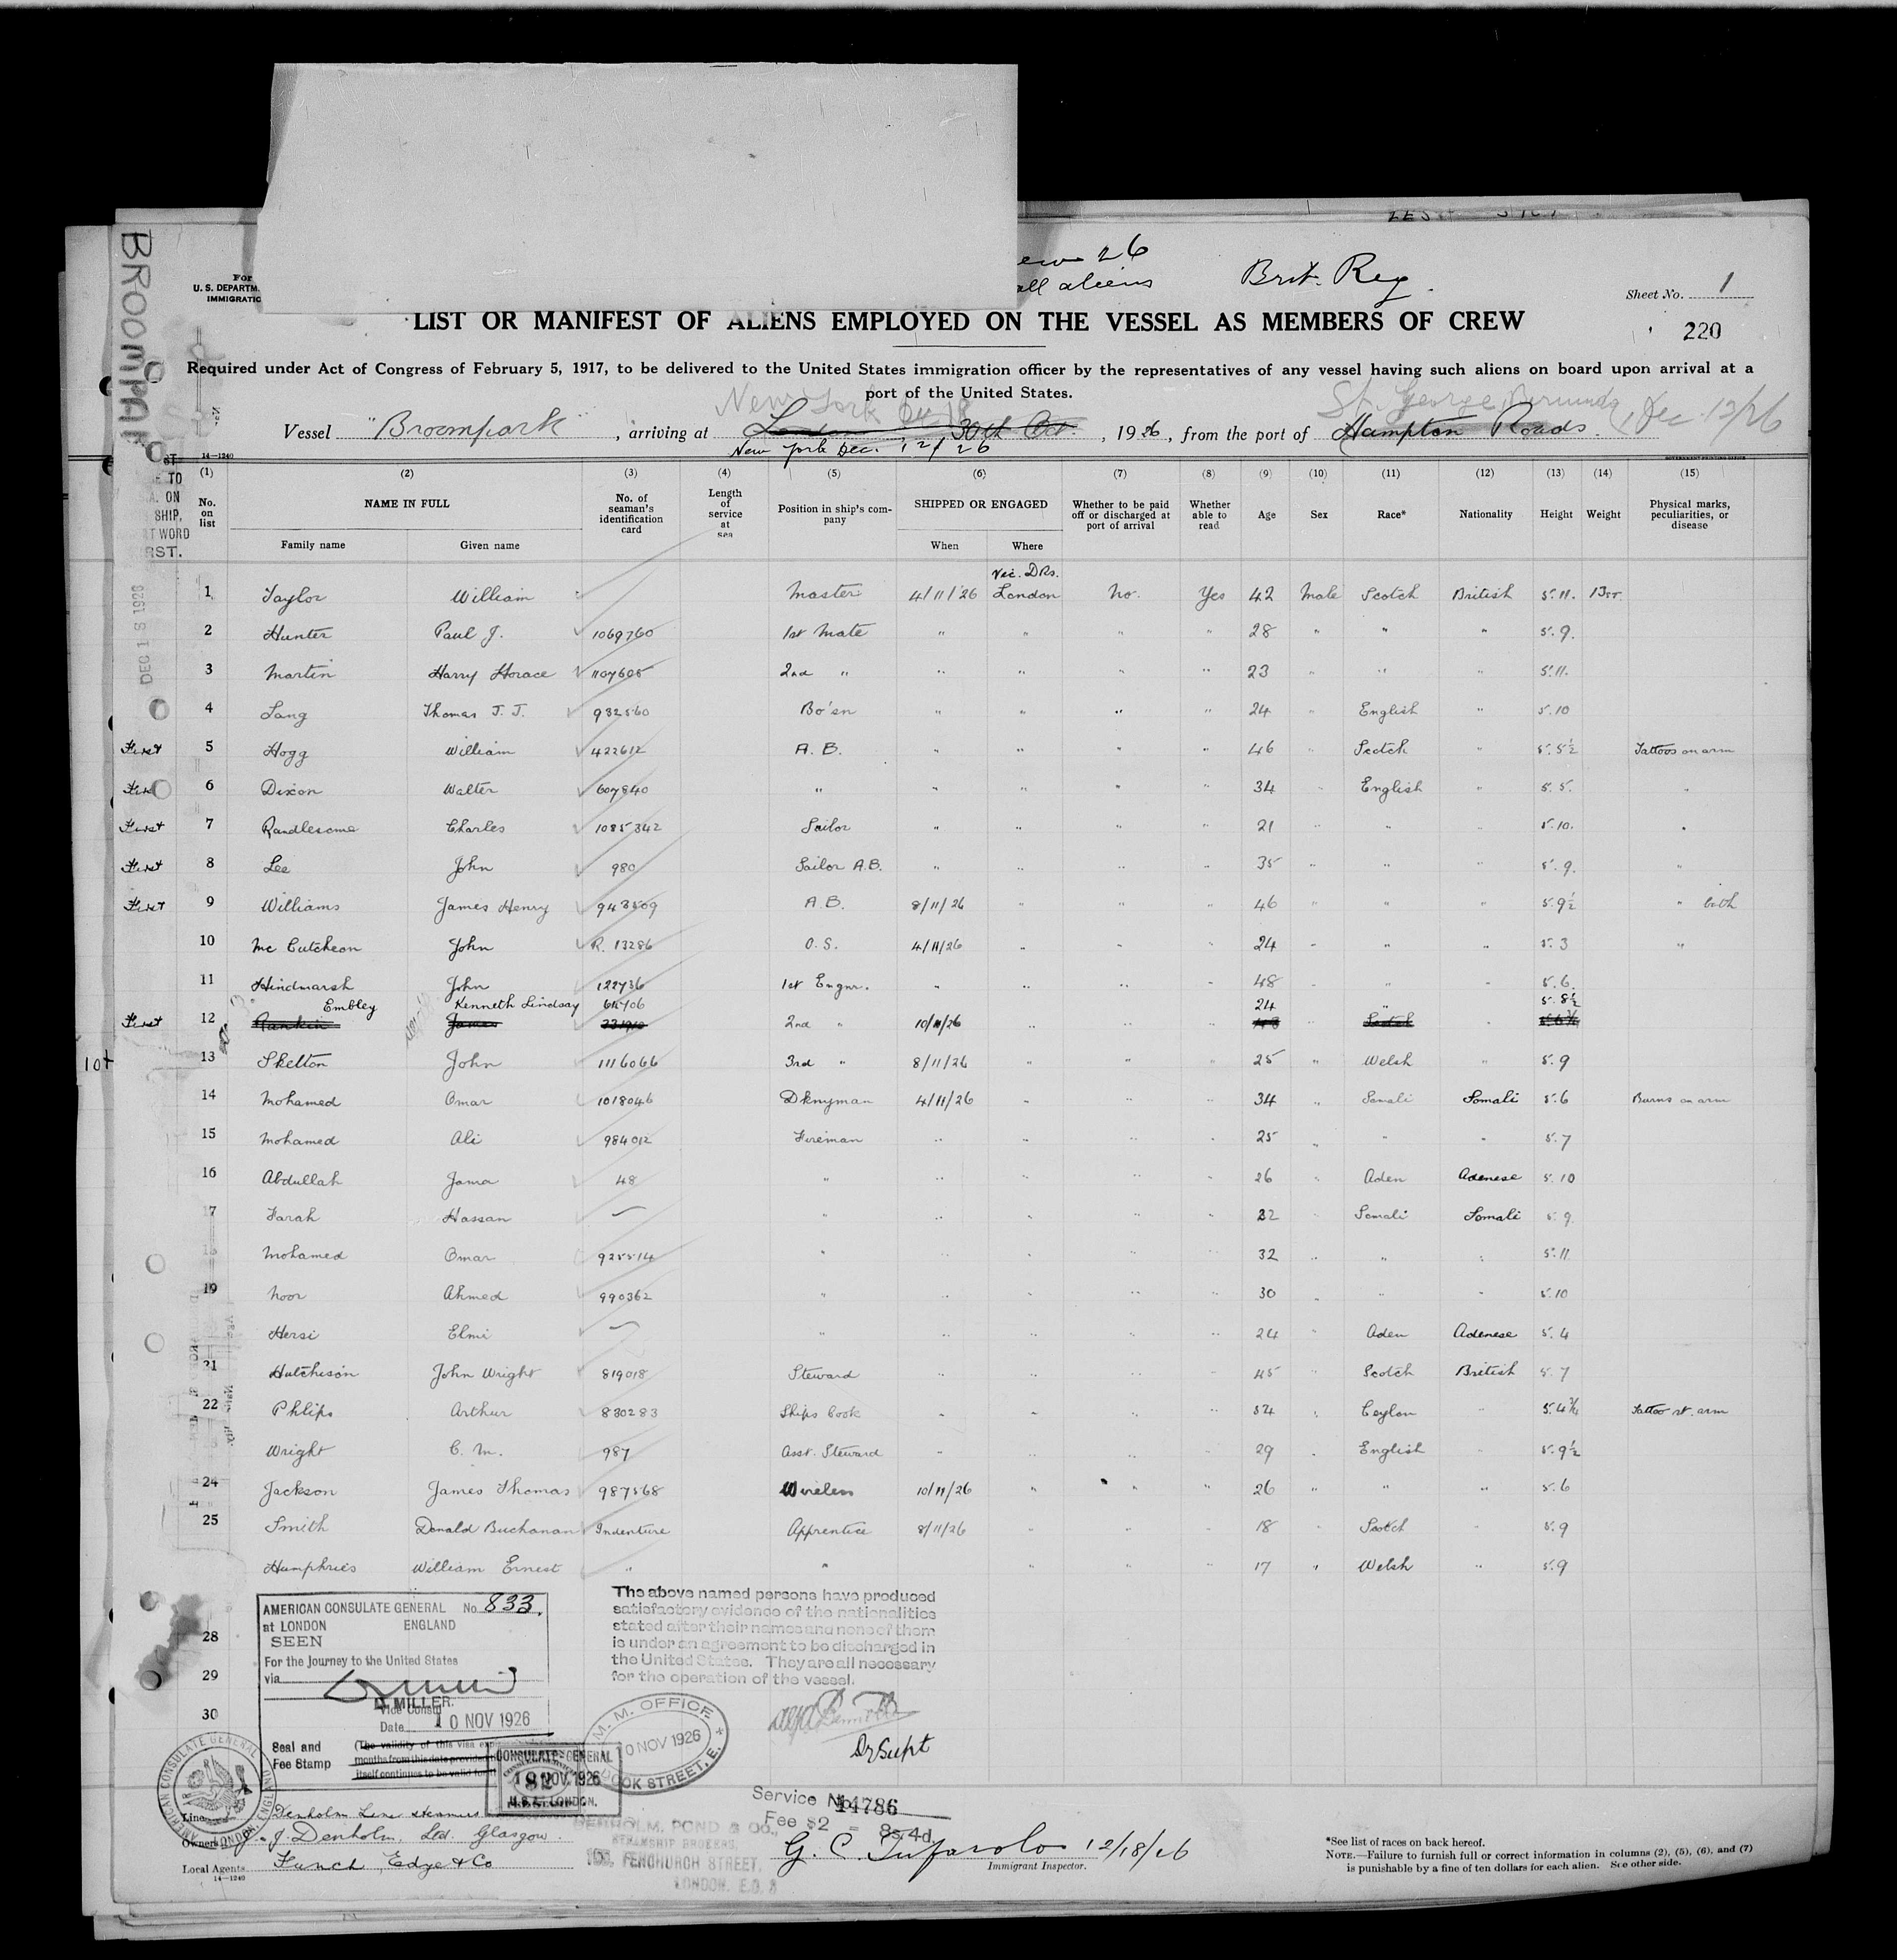 26
all aliens
Brit. Reg.
BROOMPARK
For
U. S. DEPARTM
IMMIGRATIO
Sheet No. 1
LIST OR MANIFEST OF ALIENS EMPLOYED ON THE VESSEL AS MEMBERS OF CREW
220
Required under Act of Congress of February 5, 1917, to be delivered to the United States immigration officer by the representatives of any vessel having such aliens on board upon arrival at a
port of the United States.
New York St. George Bermuda Dec 12/26
Vessel "Broompark", arriving at London 30th Oct., 1926, from the port of Hampton Roads.
New York Dec.
14—1240
TO
ON
SHIP,
WORD
RST.
DEC 1 8 1926
(1) (2) (3) (4) (5) (6) (7) (8) (9) (10) (11) (12) (13) (14) (15)
No. on list NAME IN FULL No. of seaman's identification card Length of service at sea Position in ship's company SHIPPED OR ENGAGED Whether to be paid off or discharged at port of arrival Whether able to read Age Sex Race* Nationality Height Weight Physical marks, peculiarities, or disease
Family name Given name When Where
Vic. DKs.
1 Taylor William Master 4/11/26 London No. Yes 42 Male Scotch British 5.11. 13st
2 Hunter Paul J. 1069760 1st Mate " " " " 28 " " " 5.9.
3 Martin Harry Horace 1107605 2nd " " " " " 23 " " " 5.11.
4 Lang Thomas J. J. 932560 Bo'sn " " " " 24 " English " 5.10
First 5 Hogg William 422612 A. B. " " " " 46 " Scotch " 5.5½ Tattoos on arm
6 Dixon Walter 607840 " " " " " 34 " English " 5.5. "
First 7 Randlesome Charles 1085342 Sailor " " " " 21 " " " 5.10. "
First 8 Lee John 980 Sailor A.B. " " " " 35 " " " 5.9. "
First 9 Williams James Henry 943509 A.B. 8/11/26 " " " 46 " " " 5.9½ " both
10 McCutcheon John R. 13286 O.S. 4/11/26 " " " 24 " " " 5.3 "
11 Hindmarsh John 122736 1st Engnr. " " " " 48 " " " 5.6.
Embley Kenneth Lindsay 24 " 5.8½
First 12 Rankin James 2nd " 10/11/26 " " " " Scotch "
10+ 13 Skelton John 1116066 3rd " 8/11/26 " " " 25 " Welsh " 5.9
14 Mohamed Omar 1018046 Dknyman 4/11/26 " " " 34 " Somali Somali 5.6 Burns on arm
15 Mohamed Ali 984012 Fireman " " " " 25 " " " 5.7
16 Abdullah Jama 48 " " " " " 26 " Aden Adenese 5.10
17 Farah Hassan — " " " " " 32 " Somali Somali 5.9.
18 Mohamed Omar 925514 " " " " " 32 " " " 5.11
19 Noor Ahmed 990362 " " " " " 30 " " " 5.10
Hersi Elmi — " " " " " 24 " Aden Adenese 5.4
21 Hutcheson John Wright 819018 Steward " " " " 45 " Scotch British 5.7
22 Phlips Arthur 830283 Ships Cook " " " " 54 " Ceylon " 5.4¾ Tattoo rt. arm
Wright C. M. 987 Asst. Steward " " " " 29 " English " 5.9½
24 Jackson James Thomas 987568 Wireless 10/11/26 " " " 26 " " " 5.6
25 Smith Donald Buchanan Indenture Apprentice 8/11/26 " " " 18 " Scotch " 5.9
Humphries William Ernest " " " " " 17 " Welsh " 5.9
28
29
30
AMERICAN CONSULATE GENERAL No. 833.
at LONDON ENGLAND
SEEN
For the Journey to the United States
via
D. MILLER.
Vice Consul
Date 10 NOV 1926
Seal and
Fee Stamp
(The validity of this visa
months from this date provided
itself continues to be valid for
AMERICAN CONSULATE GENERAL LONDON, ENGLAND
CONSULATE-GENERAL
10 NOV. 1926
U.S.A. LONDON.
The above named persons have produced
satisfactory evidence of the nationalities
stated after their names and none of them
is under an agreement to be discharged in
the United States. They are all necessary
for the operation of the vessel.
M. M. OFFICE
10 NOV 1926
DOCK STREET, E.
Dy Supt
Service No. 14786
Fee $2 = 8s.4d.
Line Denholm Line Steamers
Owners J. Denholm, Ltd. Glasgow.
Local Agents Funch, Edge & Co
14—1240
DENHOLM, POND & Co.,
STEAMSHIP BROKERS,
FENCHURCH STREET,
LONDON. E.C. 3
G. C. Tufarolo 12/18/26
Immigrant Inspector.
*See list of races on back hereof.
NOTE.—Failure to furnish full or correct information in columns (2), (5), (6), and (7)
is punishable by a fine of ten dollars for each alien. See other side.